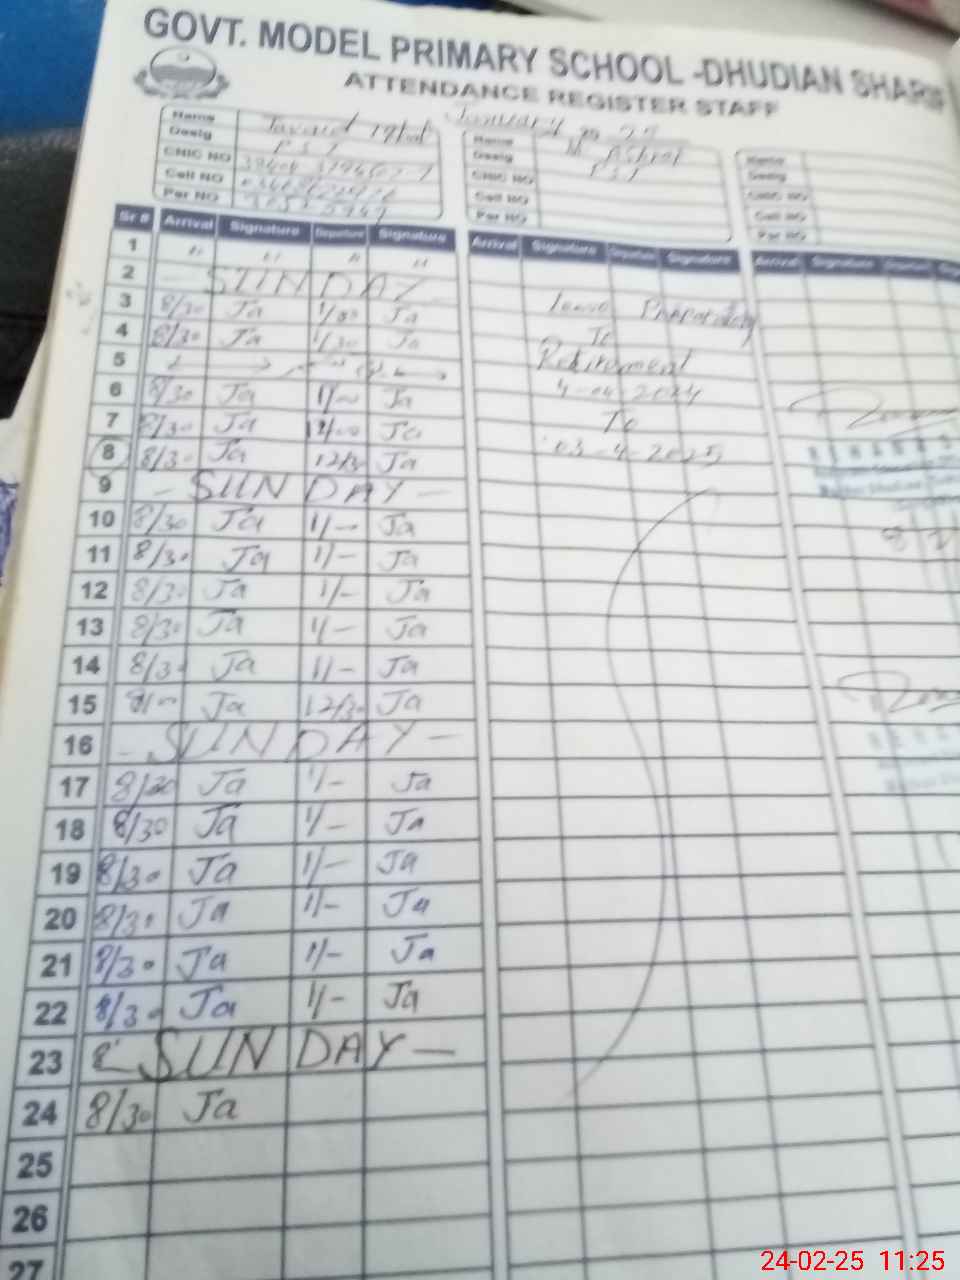 GOVT. MODEL PRIMARY SCHOOL -DHUDIAN SHARIF
ATTENDANCE REGISTER STAFF
January
Name
Desig PST
CNIC NO
Cell NO
Per NO
Name M. Ashraf
Desig PST
CNIC NO
Cell NO
Per NO
Name
Desig
CNIC NO
Cell NO
Per NO
Sr # Arrival Signature Departure Signature Arrival Signature Departure Signature Arrival Signature Departure
1 " " " "
2 SUNDAY
3 8/30 Ja 1/30 Ja Leave Preparatory
4 8/30 Ja 1/30 Ja To
5 Retirement
6 8/30 Ja 1/00 Ja 4-04-2024
7 8/30 Ja 12/00 Ja To
8 8/30 Ja 12/30 Ja 03-4-2025
9 - SUNDAY -
10 8/30 Ja 1/- Ja
11 8/30 Ja 1/- Ja
12 8/30 Ja 1/- Ja
13 8/30 Ja 1/- Ja
14 8/30 Ja 1/- Ja
15 Ja 12/30 Ja
16 - SUNDAY -
17 8/30 Ja 1/- Ja
18 8/30 Ja 1/- Ja
19 8/30 Ja 1/- Ja
20 8/30 Ja 1/- Ja
21 8/30 Ja 1/- Ja
22 8/30 Ja 1/- Ja
23 SUNDAY -
24 8/30 Ja
25
26
27
24-02-25 11:25